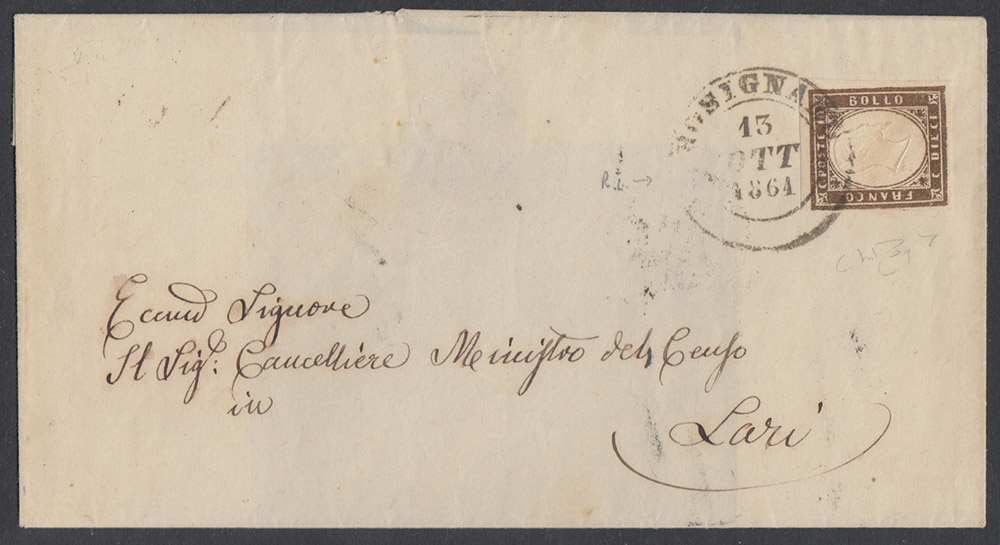 ROSIGNA
13
OTT
1861
FRANCO
C. POSTE
C. DIECI
BOLLO
R.L. →
Eccmo Signore
Il Sigr: Cancelliere Ministro del Censo
in
Lari